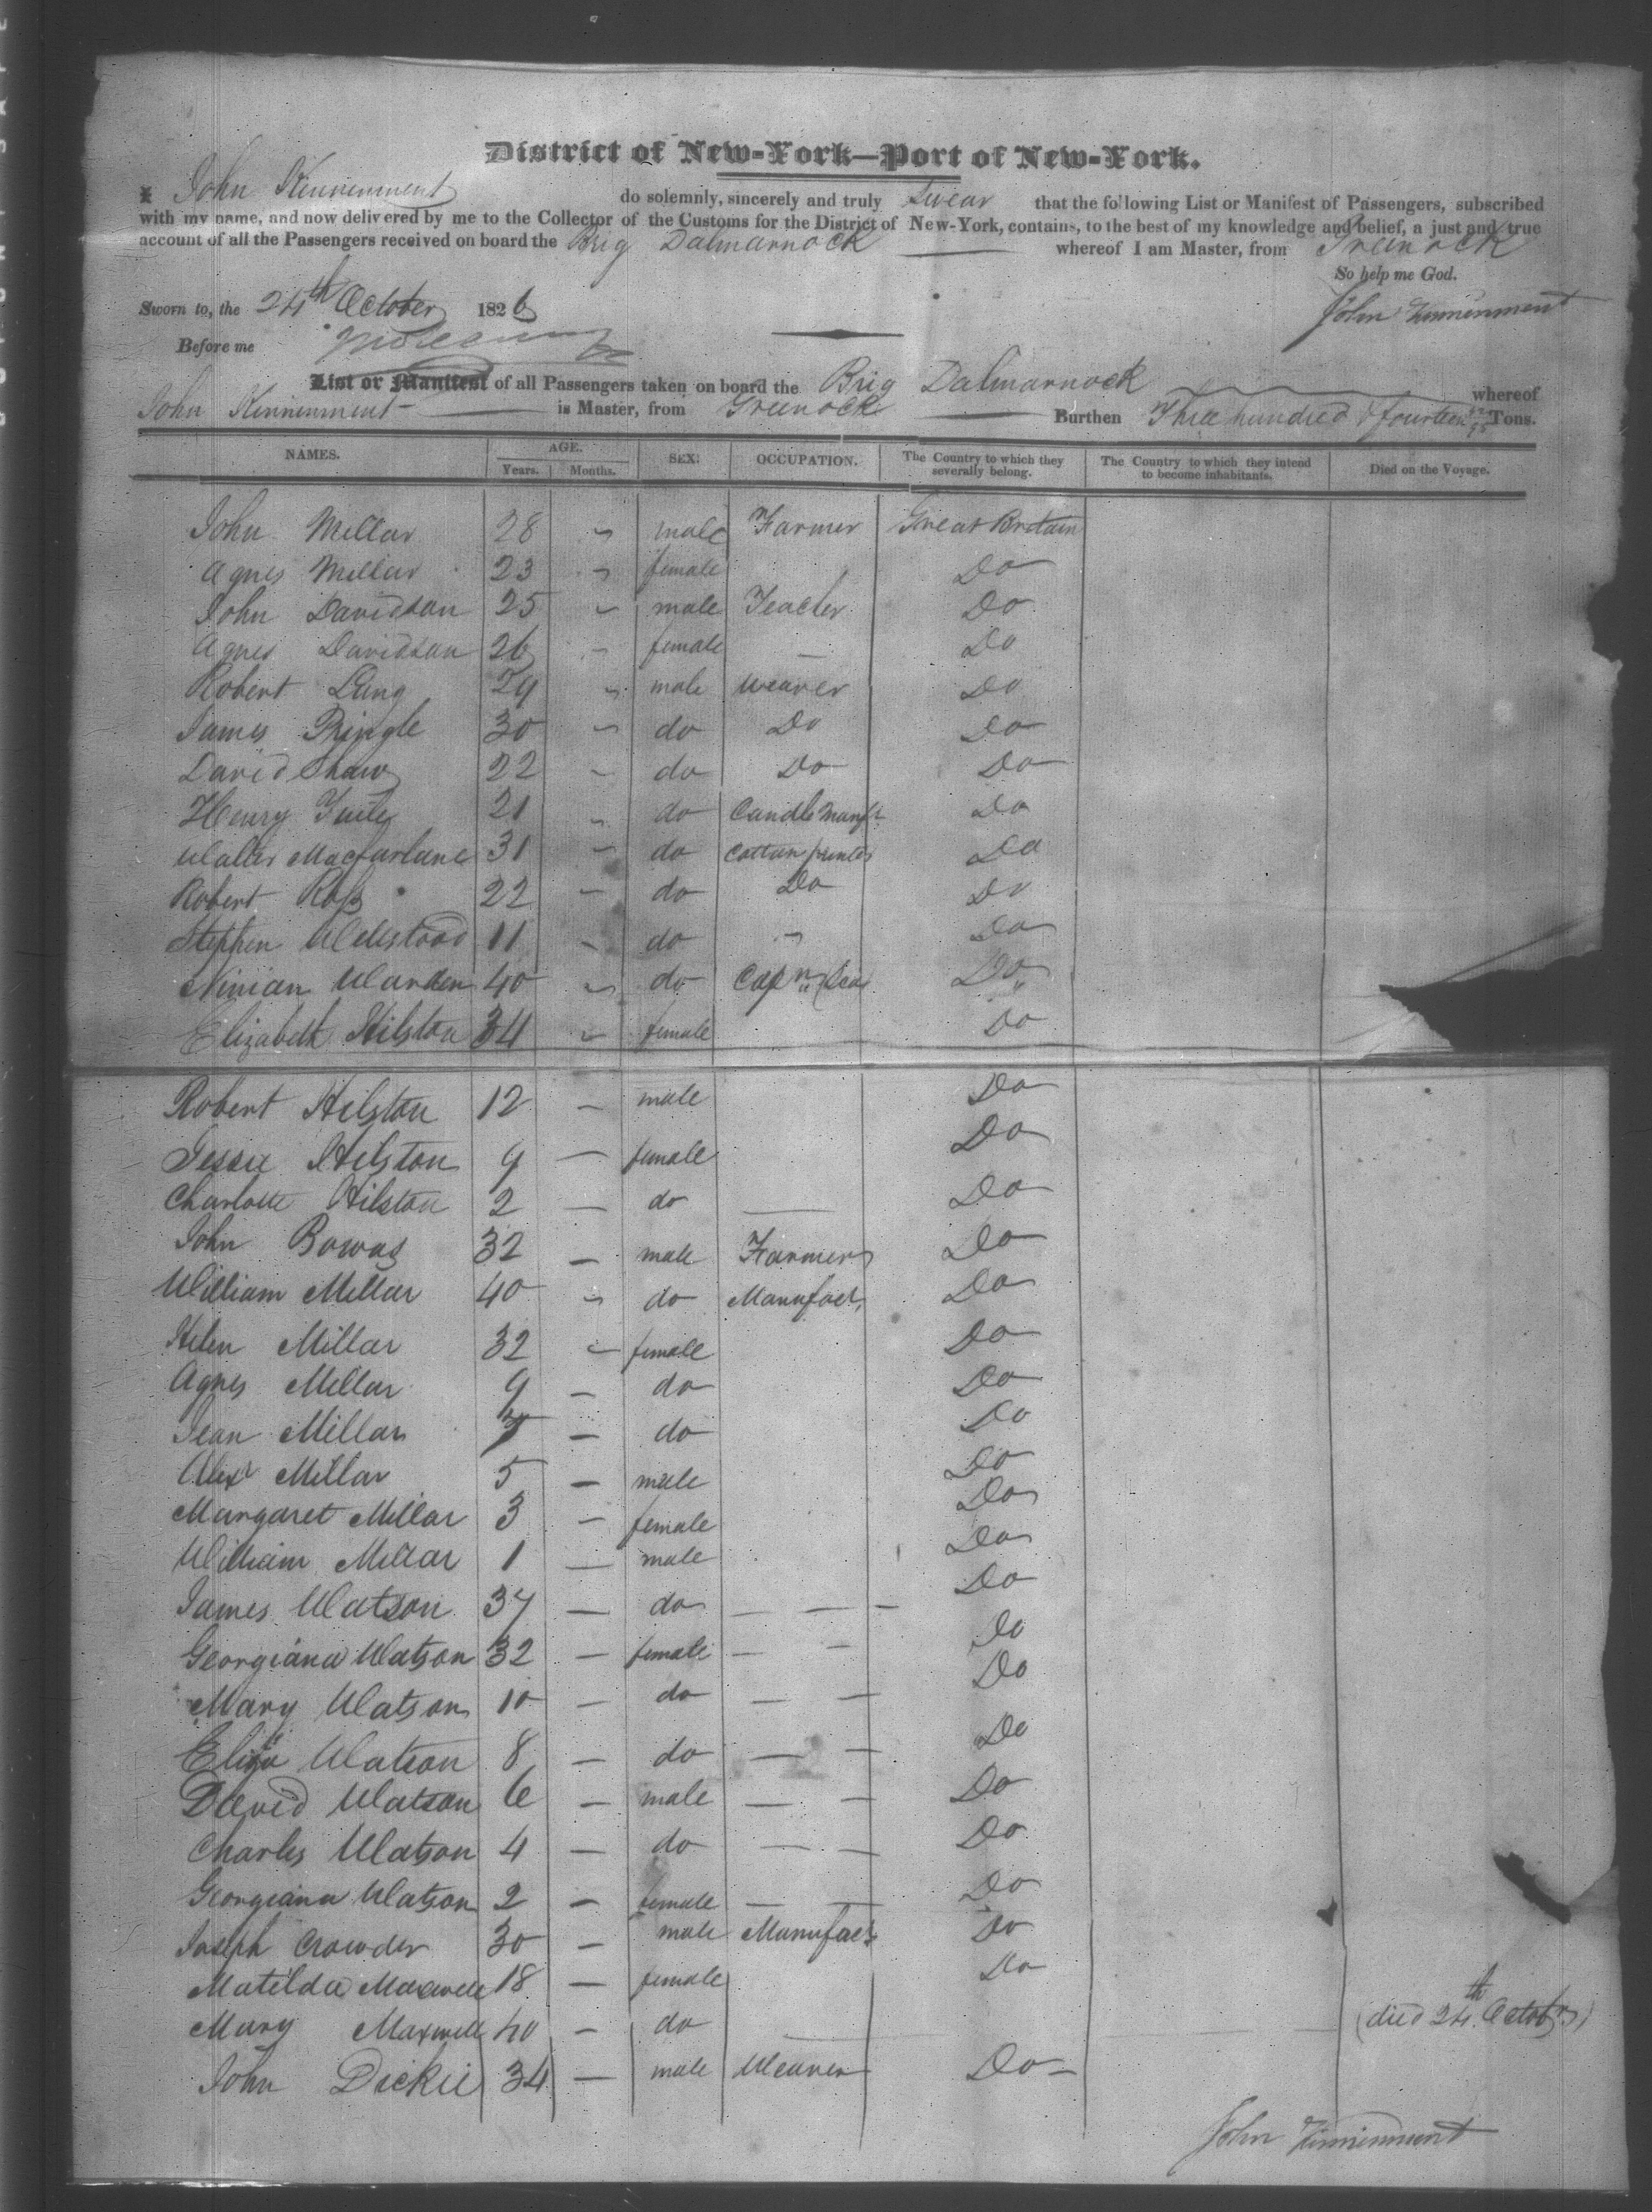 District of New-York—Port of New-York.
I John Kinninment do solemnly, sincerely and truly Swear that the following List or Manifest of Passengers, subscribed
with my name, and now delivered by me to the Collector of the Customs for the District of New-York, contains, to the best of my knowledge and belief, a just and true
account of all the Passengers received on board the Brig Dalmarnock whereof I am Master, from Greenock
So help me God.
Sworn to, the 24th October 1826 John Kinninment
Before me
List or Manifest of all Passengers taken on board the Brig Dalmarnock whereof
John Kinninment is Master, from Greenock Burthen Three hundred & fourteen Tons.
NAMES. AGE. SEX. OCCUPATION. The Country to which they severally belong. The Country to which they intend to become inhabitants. Died on the Voyage.
Years. Months.
John Millar 28 " male Farmer Great Britain
Agnes Millar 23 " female Do
John Davidson 25 " male Teacher Do
Agnes Davidson 26 " female — Do
Robert Laing 29 " male Weaver Do
James Pringle 30 " do Do Do
David Shaw 22 " do Do Do
Henry 21 " do Candle Manfr Do
Walter Macfarlane 31 " do Cotton printer Do
Robert Ross 22 — do Do Do
Stephen 11 " do " Do
Ninian Warden 40 " do Capn Do
Elizabeth Hilston 34 " female Do
Robert Hilston 12 — male Do
Jessie Hilston 9 — female Do
Charlotte Hilston 2 — do — Do
John Bowas 32 — male Farmer Do
William Millar 40 " do Manufact. Do
Helen Millar 32 — female Do
Agnes Millar 9 — do Do
Jean Millar 7 — do Do
Alexr Millar 5 — male Do
Margaret Millar 3 — female Do
William Millar 1 — male Do
James Watson 37 — do — — — Do
Georgiana Watson 32 — female — — Do
Mary Watson 10 — do — — Do
Eliza Watson 8 — do — — Do
David Watson 6 — male — — Do
Charles Watson 4 — do — — Do
Georgiana Watson 2 — female — — Do
Joseph Crowder 30 — male Manufactr Do
Matilda Maxwell 18 — female Do
Mary Maxwell 40 — do — (died 24th Octobr)
John Dickie 34 — male Weaver Do —
John Kinninment